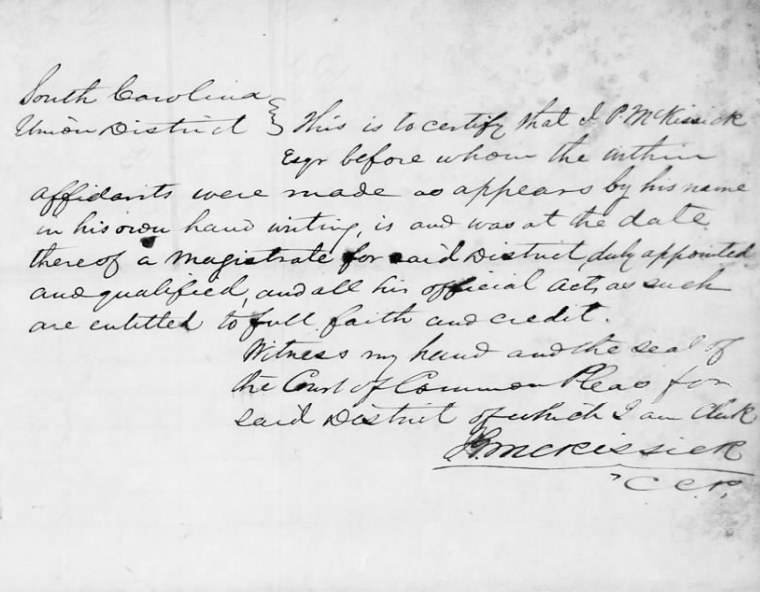 South Carolina
Union District } This is to certify that I. P. McKissick
Esqr before whom the within
affidavits were made as appears by his name
in his own hand writing, is and was at the date
thereof a magistrate for said District, duly appointed
and qualified, and all his official acts, as such
are entitled to full faith and credit.
Witness my hand and the seal of
the Court of Common Pleas for
said District of which I am Clerk
McKissick
C.C.P.